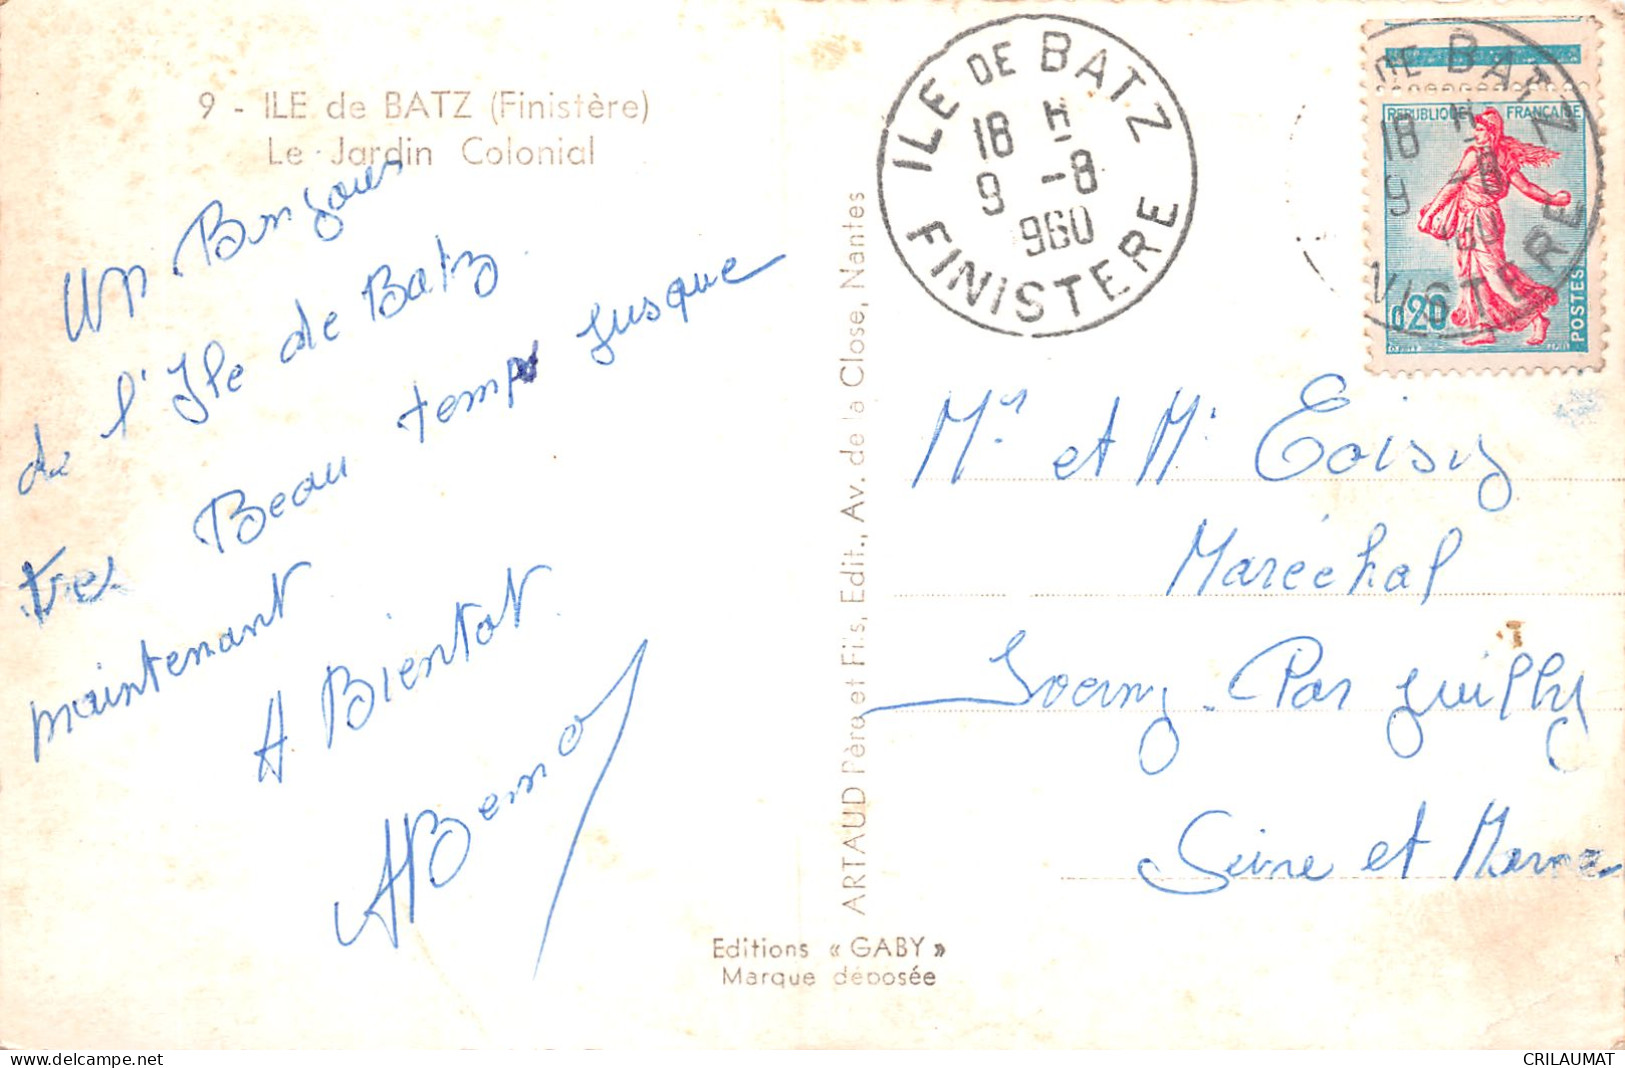 9 - ILE de BATZ (Finistère)
Le Jardin Colonial
Un Bonjour
de l'Ile de Batz
tres Beau temps jusque
maintenant
A Bientot
Editions « GABY »
Marque déposée
ARTAUD Père et Fils, Edit., Av. de la Close, Nantes
ILE DE BATZ
18 H
9 -8
960
FINISTERE
DE BATZ
18 H
9 -8
60
NISTERE
REPUBLIQUE FRANÇAISE
0,20
POSTES
Mr et Me Loisy
Maréchal
Par Juilly
Seine et Marne
CRILAUMAT
www.delcampe.net